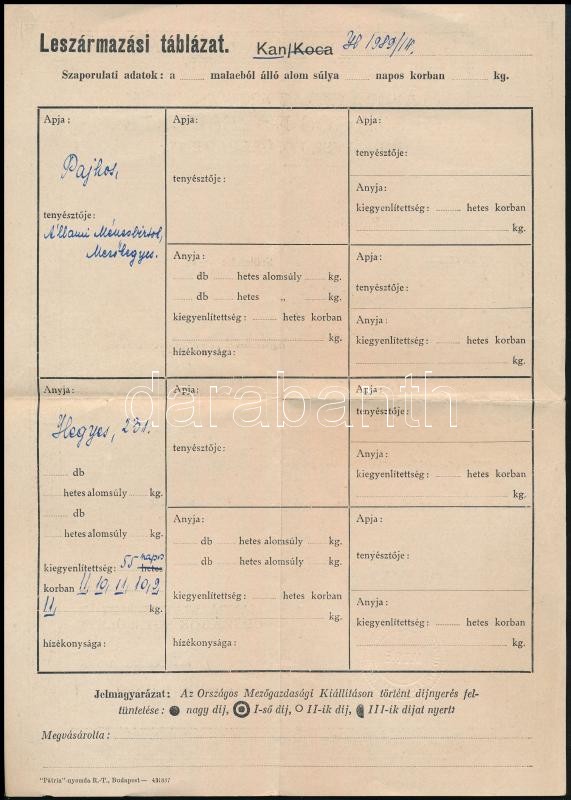 Leszármazási táblázat. Kan/Koca
Szaporulati adatok: a ........ malacból álló alom súlya ........ napos korban ........ kg.
Apja:
Pajkos,
tenyésztője:
Állami Ménesbirtok,
Mezőhegyes.
Apja:
tenyésztője:
Anyja:
........ db ........ hetes alomsúly ........ kg.
........ db ........ hetes „ ........ kg.
kiegyenlítettség: ........ hetes korban
........ kg.
hízékonysága:
Apja:
tenyésztője:
Anyja:
kiegyenlítettség: ........ hetes korban
........ kg.
Apja:
tenyésztője:
Anyja:
kiegyenlítettség: ........ hetes korban
........ kg.
Anyja:
Hegyes, 231.
........ db
........ hetes alomsúly ........ kg.
........ db
........ hetes alomsúly ........ kg.
kiegyenlítettség: 55 napos hetes
korban 11, 10, 11, 10, 9,
11, ........ kg.
hízékonysága:
Apja:
tenyésztője:
Anyja:
........ db ........ hetes alomsúly ........ kg.
........ db ........ hetes alomsúly ........ kg.
kiegyenlítettség: ........ hetes korban
........ kg.
hízékonysága:
Apja:
tenyésztője:
Anyja:
kiegyenlítettség: ........ hetes korban
........ kg.
Apja:
tenyésztője:
Anyja:
kiegyenlítettség: ........ hetes korban
........ kg.
darabanth
Jelmagyarázat: Az Országos Mezőgazdasági Kiállításon történt díjnyerés fel-
tüntetése: nagy díj, I-ső díj, II-ik díj, III-ik díjat nyert:
Megvásárolta:
"Pátria"-nyomda R.-T., Budapest —